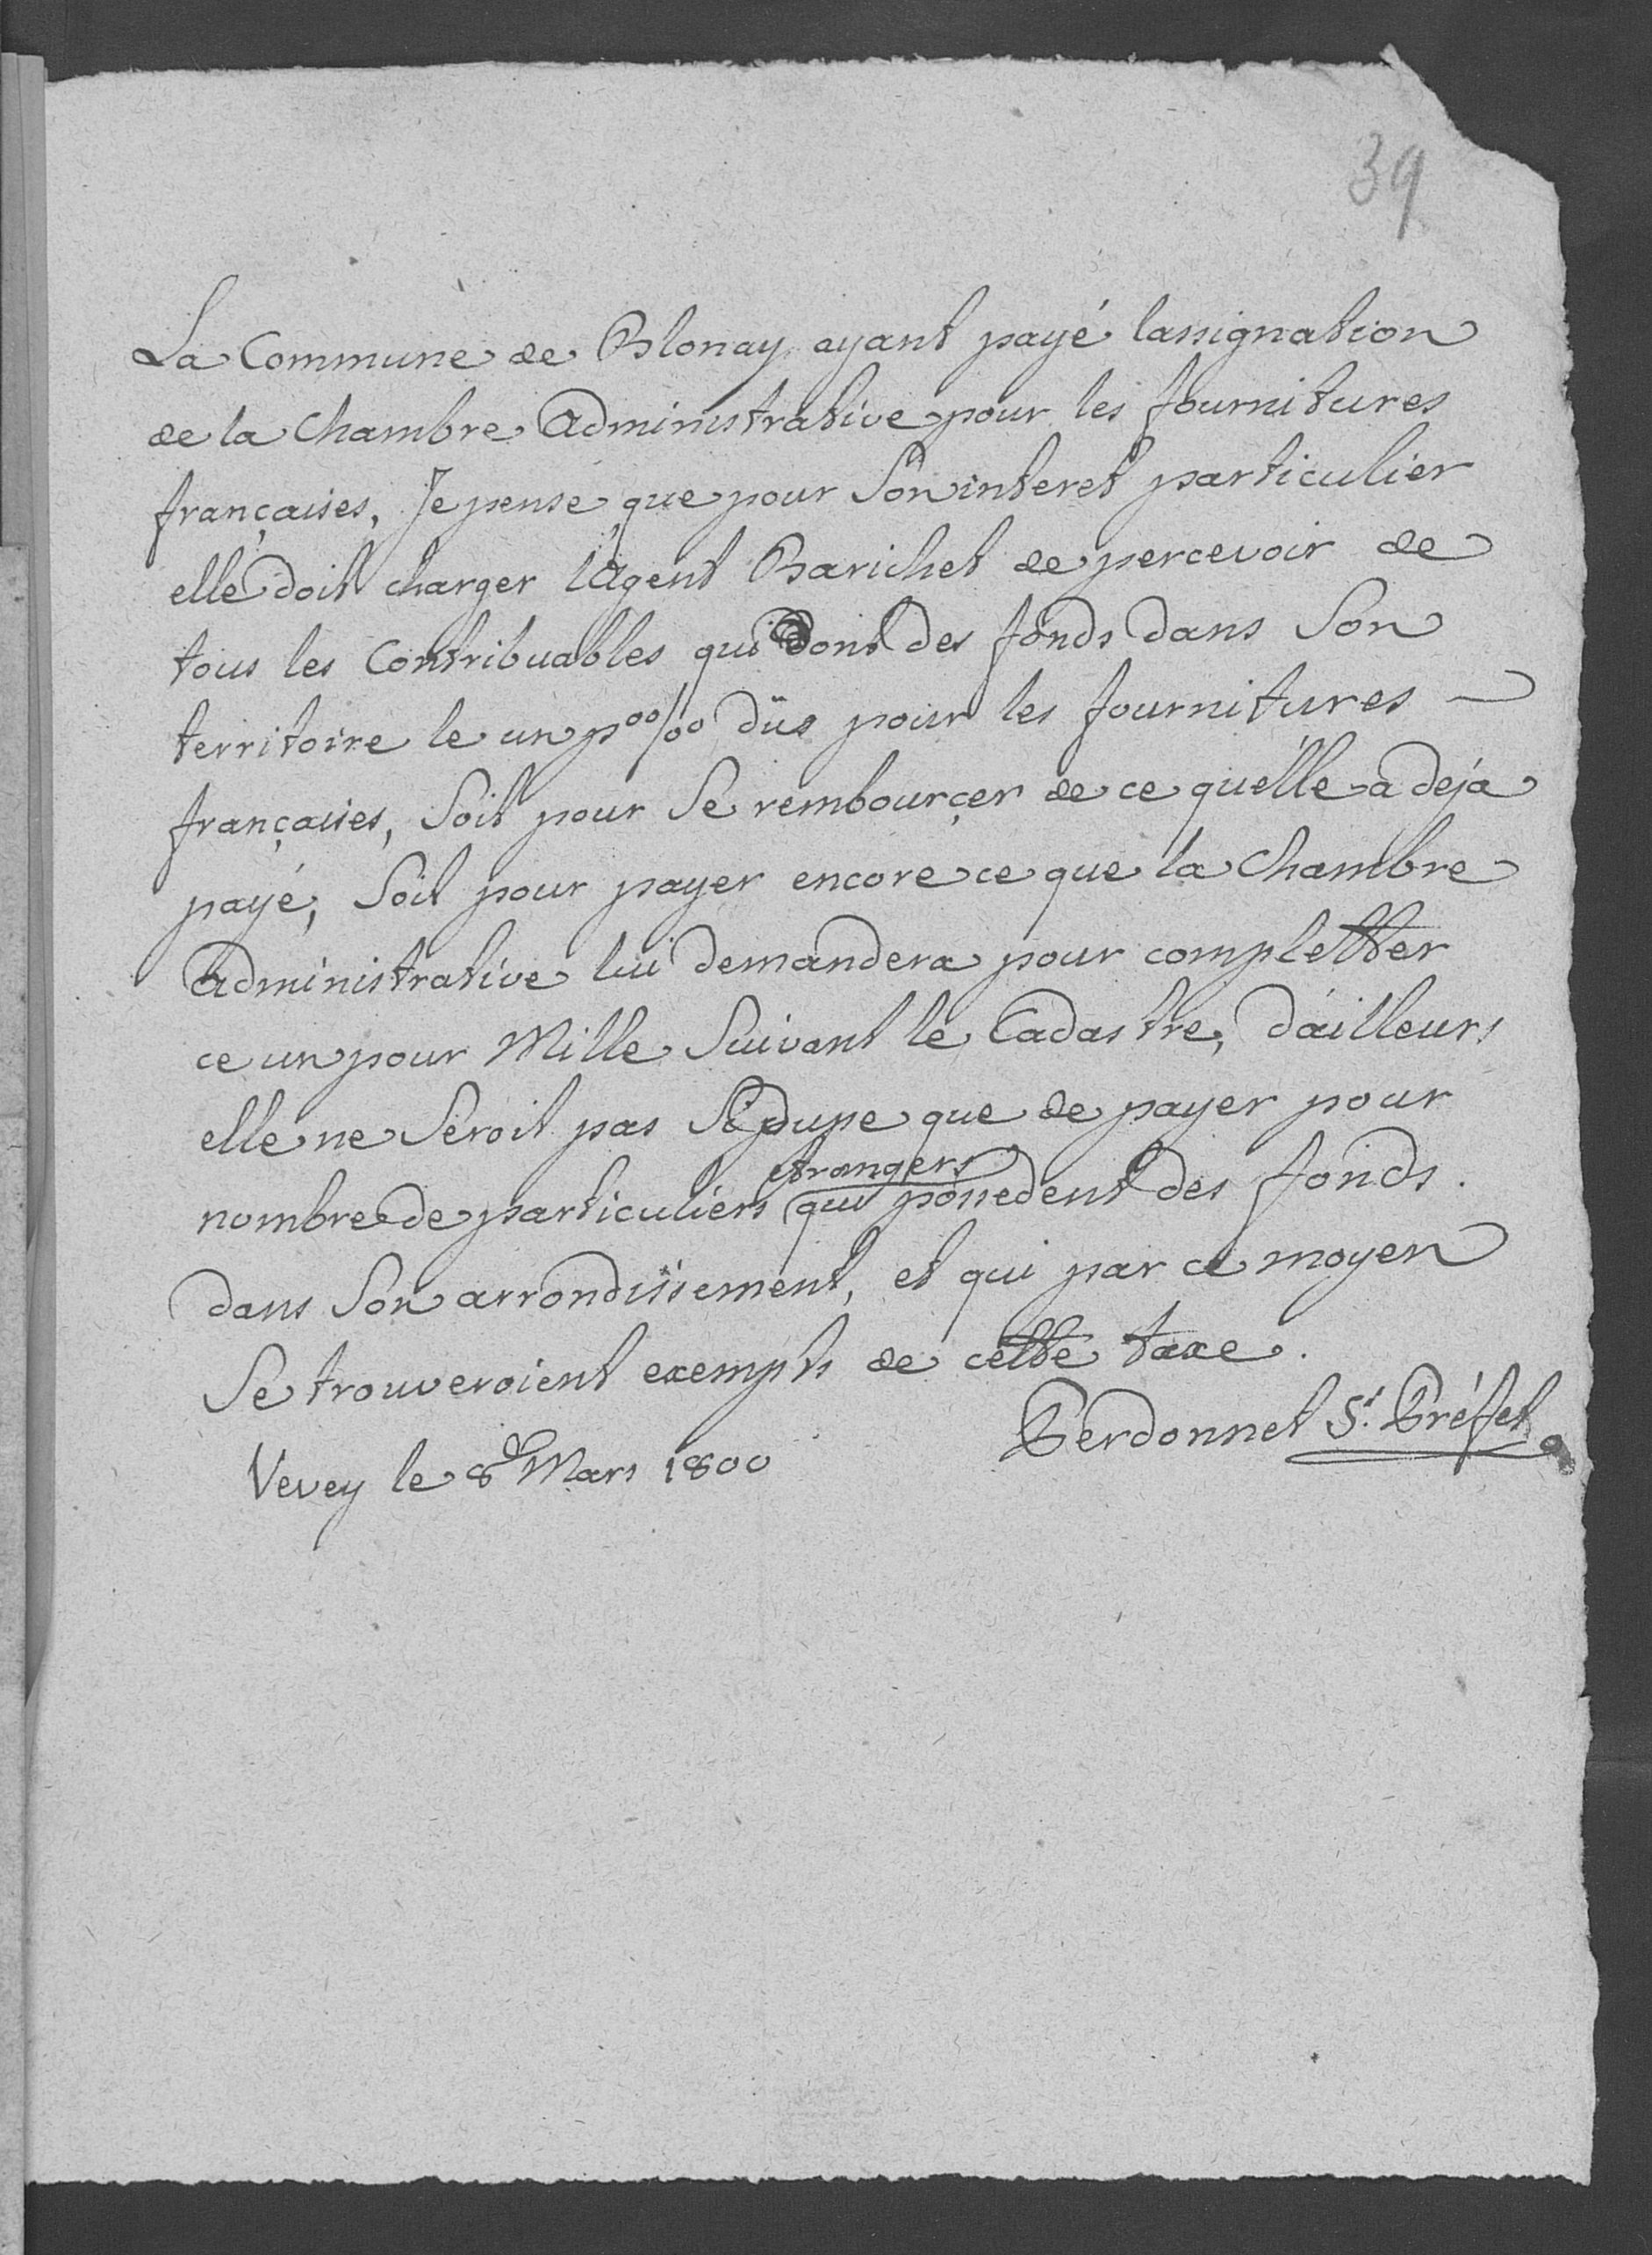 39
La Commune de Blonay ayant payé lassignation
de la Chambre Administrative pour les fournitures
françaises, Je pense que pour Son interet particulier
elle doit charger l'Agent Barichet de percevoir de
tous les Contribuables qui ont des fonds dans Son
territoire le un poo/oo düs pour les fournitures —
françaises, Soit pour Se rembourçer de ce qu'elle a deja
payé, Soit pour payer encore ce que la Chambre
Administrative lui demandera pour completter
ce un pour Mille Suivant le Cadastre, d'ailleurs
elle ne Seroit pas Si dupe que de payer pour
etrangers
nombre de particuliers qui possedent des fonds.
dans Son arrondissement, et qui par ce moyen
Se trouveroient exempts de cette taxe.
Perdonnet St. Préfet
Vevey le 8e Mars 1800